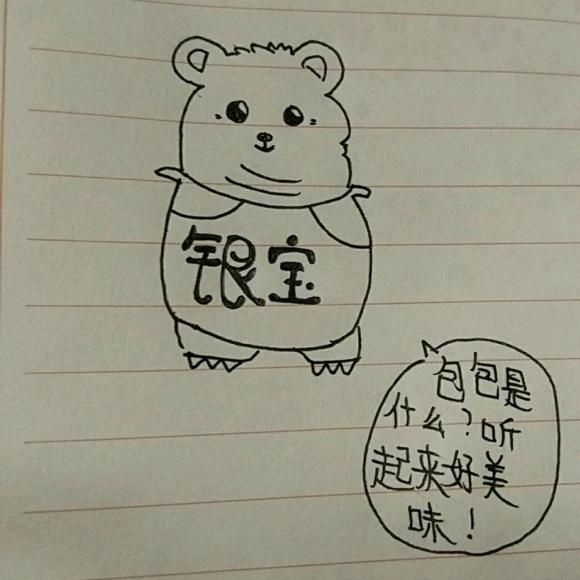 银宝
包包是
什么？听
起来好美
味！